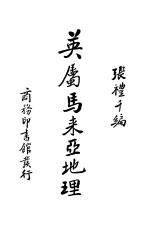 張禮千編
英屬馬來亞地理
商務印書館發行